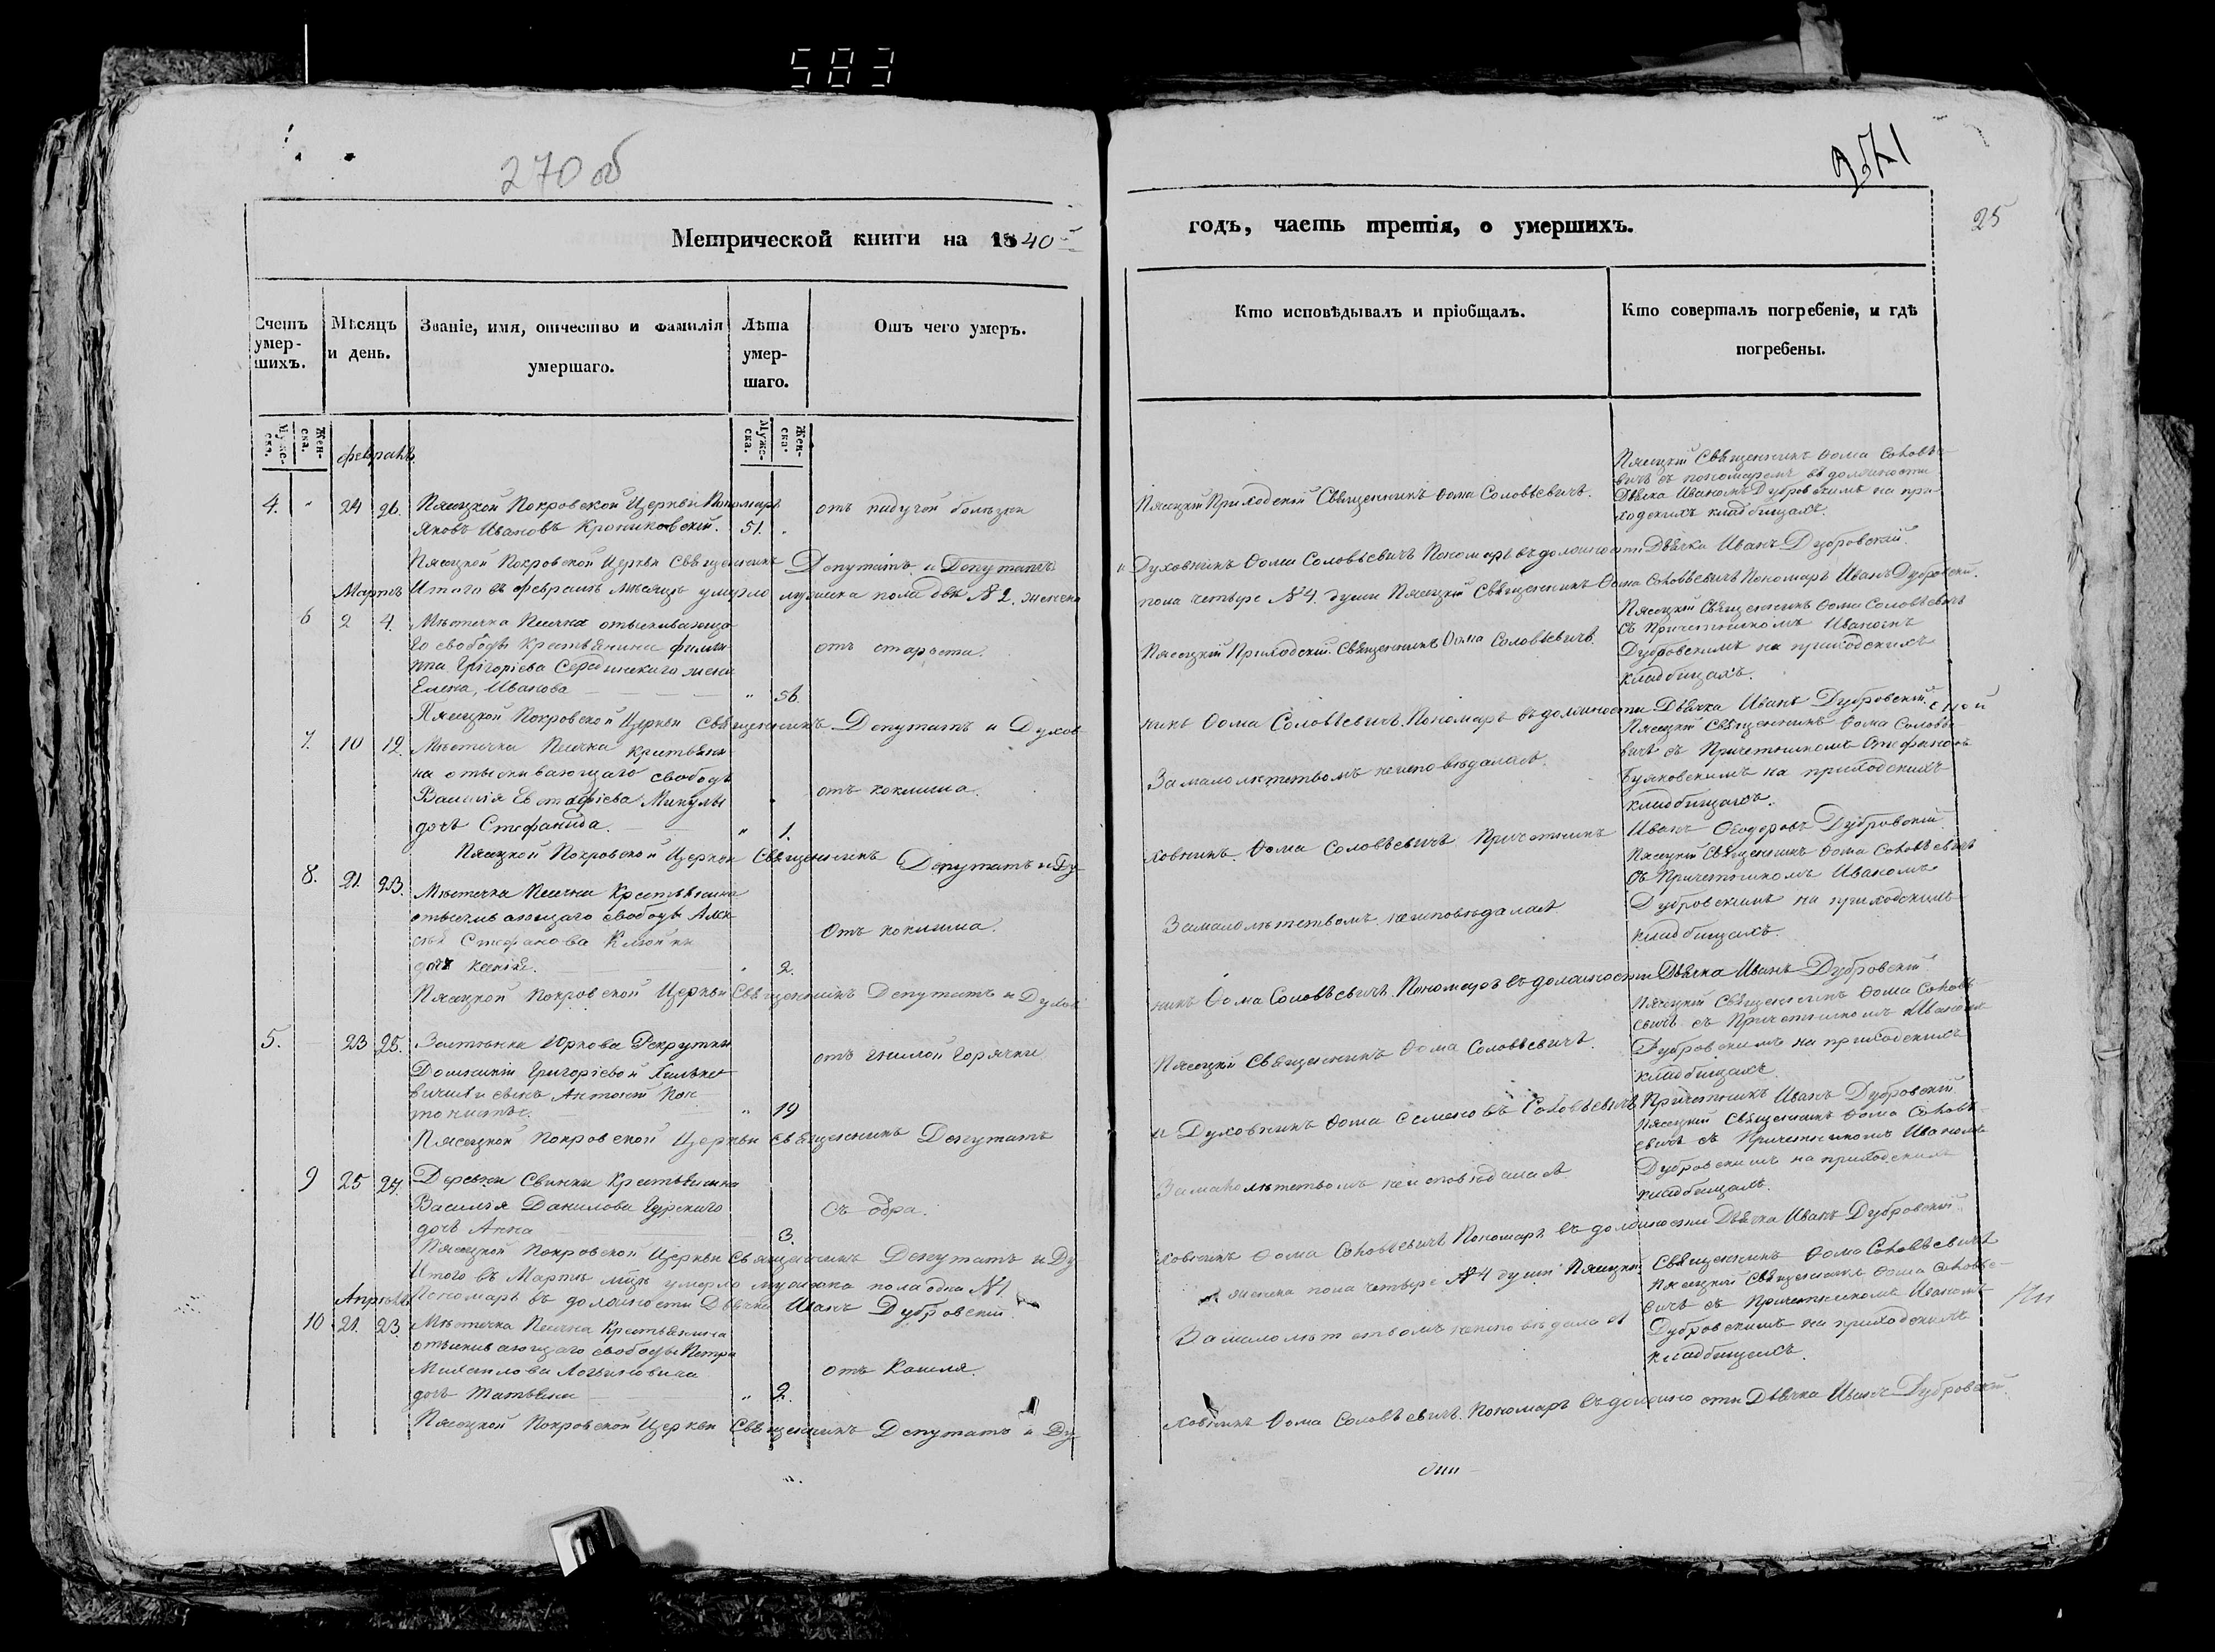 583
270 об
271
25
Метрической книги на 1840й
годъ, часть третія, о умершихъ.
Счетъ умер-шихъ.
Мѣсяцъ и день.
Званіе, имя, отчество и фамилія умершаго.
Лѣта умер-шаго.
Отъ чего умеръ.
Кто исповѣдывалъ и пріобщалъ.
Кто совершалъ погребеніе, и гдѣ погребены.
Муже-ска.
Жен-ска.
Муже-ска.
Жен-ска.
февраль
4. " 24 26. Пясецкой Покровской Церкви Пономарь
Яковъ Ивановъ Крониковскій. 51. "
отъ падучой болѣзни
Пясецкій Приходскій Священникъ Ѳома Соловѣевичъ.
Пясецкій Священникъ Ѳома Соловѣе-
вичъ съ пономаремъ въ должности
Дьячка Иваномъ Дубровскимъ на при-
ходскихъ кладбищахъ.
Пясецкой Покровской Церкви Священникъ Депутатъ и Депутатъ
и Духовникъ Ѳома Соловѣевичъ Пономарь въ должности Дьячка Иванъ Дубровскій.
Мартъ
Итого въ февралѣ мѣсяцѣ умерло мужеска пола два № 2. женска
пола четыре № 4. души Пясецкій Священникъ Ѳома Соловѣевичъ Пономарь Иванъ Дубровскій.
6 2 4. Мѣстечка Песчка отыскивающа-
го свободы Крестьянина Филип-
па Григоріева Сердынскаго жена
Елена, Иванова " 56.
отъ староста.
Пясецкій Приходскій Священникъ Ѳома Соловѣевичъ.
Пясецкій Священникъ Ѳома Соловѣевичъ
съ Причетникомъ Иваномъ
Дубровскимъ на приходскихъ
кладбищахъ.
Пясецкой Покровской Церкви Священникъ Депутатъ и Духов-
никъ Ѳома Соловѣевичъ. Пономарь въ должности Дьячка Иванъ Дубровскій.
7. 10 12. Мѣстечка Песчка Крестьяни-
на отыскивающаго свободы
Василія Евстафіева Микулы
дочь Стефанида. " 1.
отъ коклюша.
За малолѣтствомъ неисповѣдалась.
Пясецкій Священникъ Ѳома Соловѣе-
вичъ съ Причетникомъ Стефаномъ
Буяковскимъ на приходскихъ
кладбищахъ.
Пясецкой Покровской Церкви Священникъ Депутатъ и Ду-
ховникъ. Ѳома Соловѣевичъ Причетникъ Иванъ Ѳеодоровъ Дубровскій
8. 21. 23. Мѣстечка Песчка Крестьянина
отыскивающаго свободы Алек-
сѣя Стефанова
дочь Ксенія. " 2.
Отъ коклюша.
За малолѣтствомъ неисповѣдалась
Пясецкій Священникъ Ѳома Соловѣевичъ
съ Причетникомъ Иваномъ
Дубровскимъ на приходскихъ
кладбищахъ.
Пясецкой Покровской Церкви Священникъ Депутатъ и Духов-
никъ Ѳома Соловѣевичъ. Пономарь въ должности Дьячка Иванъ Дубровскій
5. 23 25. Застѣнка Юркова Рекрутки
Домникіи Григоріевой
сынъ Антоній Кан-
тонистъ. " 19
отъ гнилой горячки
Пясецкій Священникъ Ѳома Соловѣевичъ.
Пясецкій Священникъ Ѳома Соловѣ-
евичъ съ Причетникомъ Иваномъ
Дубровскимъ на приходскихъ
кладбищахъ.
Пясецкой Покровской Церкви Священникъ Депутатъ
и Духовникъ Ѳома Семеновъ Соловѣевичъ Причетникъ Иванъ Дубровскій
9 25 27. Деревни Свинки Крестьянина
Василія Данилова Гурскаго
дочь Анна 3.
Съ обра.
За малолѣтствомъ неисповѣдалась
Пясецкій Священникъ Ѳома Соловѣ-
евичъ съ Причетникомъ Иваномъ
Дубровскимъ на приходскихъ
кладбищахъ.
Пясецкой Покровской Церкви Священникъ Депутатъ и Ду-
ховникъ Ѳома Соловѣевичъ Пономарь въ должности Дьячка Иванъ Дубровскій.
Итого въ Мартѣ мцѣ умерло мужеска пола одна № 1
женска пола четыре № 4 души Пясецкій Священникъ Ѳома Соловѣевичъ
Апрѣль
Пономарь въ должности Дьячка Иванъ Дубровскій
10 21. 23. Мѣстечка Песчка Крестьянина
отыскивающаго свободы Петра
Михаилова Логвиновича
дочь Татьяна " 2.
отъ Кашля.
За малолѣтствомъ неисповѣдалась
Пясецкій Священникъ Ѳома Соловѣе-
вичъ съ Причетникомъ Иваномъ
Дубровскимъ на приходскихъ
кладбищахъ.
Пясецкой Покровской Церкви Священникъ Депутатъ и Ду-
ховникъ Ѳома Соловѣевичъ. Пономарь въ должности Дьячка Иванъ Дубровскій.